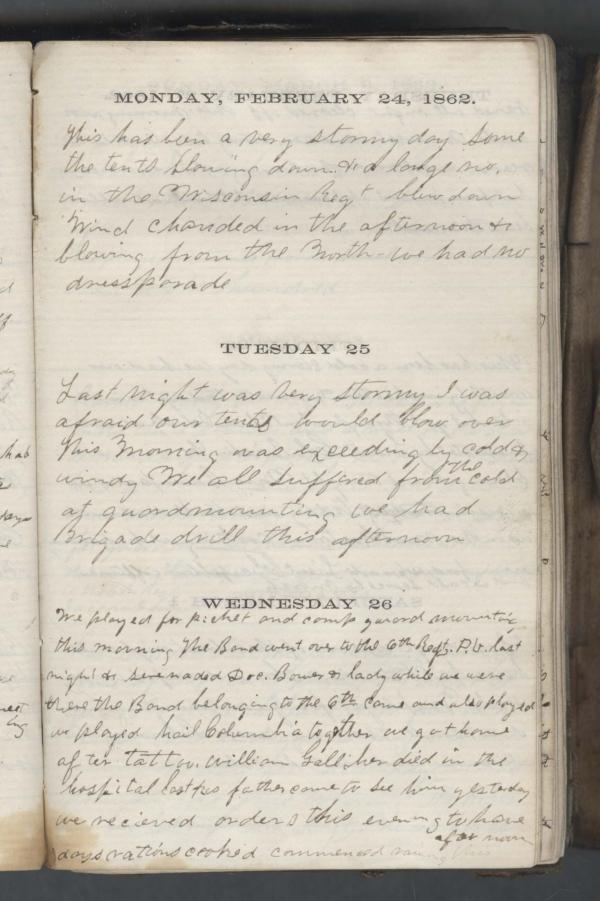 MONDAY, FEBRUARY 24, 1862.
This has been a very stormy day some
the tents blowing down. & a large no.
in the Wisconsin Regt blew down
Wind chanded in the afternoon &
blowing from the North - we had no
dressparade
TUESDAY 25
Last night was very stormy I was
afraid our tents would blow over
this Morning was exceedingly cold &
windy We all suffired from the cold
at guardmounting we had
Brigade drill this afternoon
WEDNESDAY 26
We played for picket and camp guard mounting
this morning The Band went over to the 6th Regt. P.V. last
night & serenaded Doc. Bower & lady while we were
there the Band belonging to the 6th came and also played
we played hail Columbia together we got home
after tattoo. William Galliher died in the
hospital last his father came to see him yesterday
we recieved orders this evening to have
days rations cooked commenced raining this
afternoon